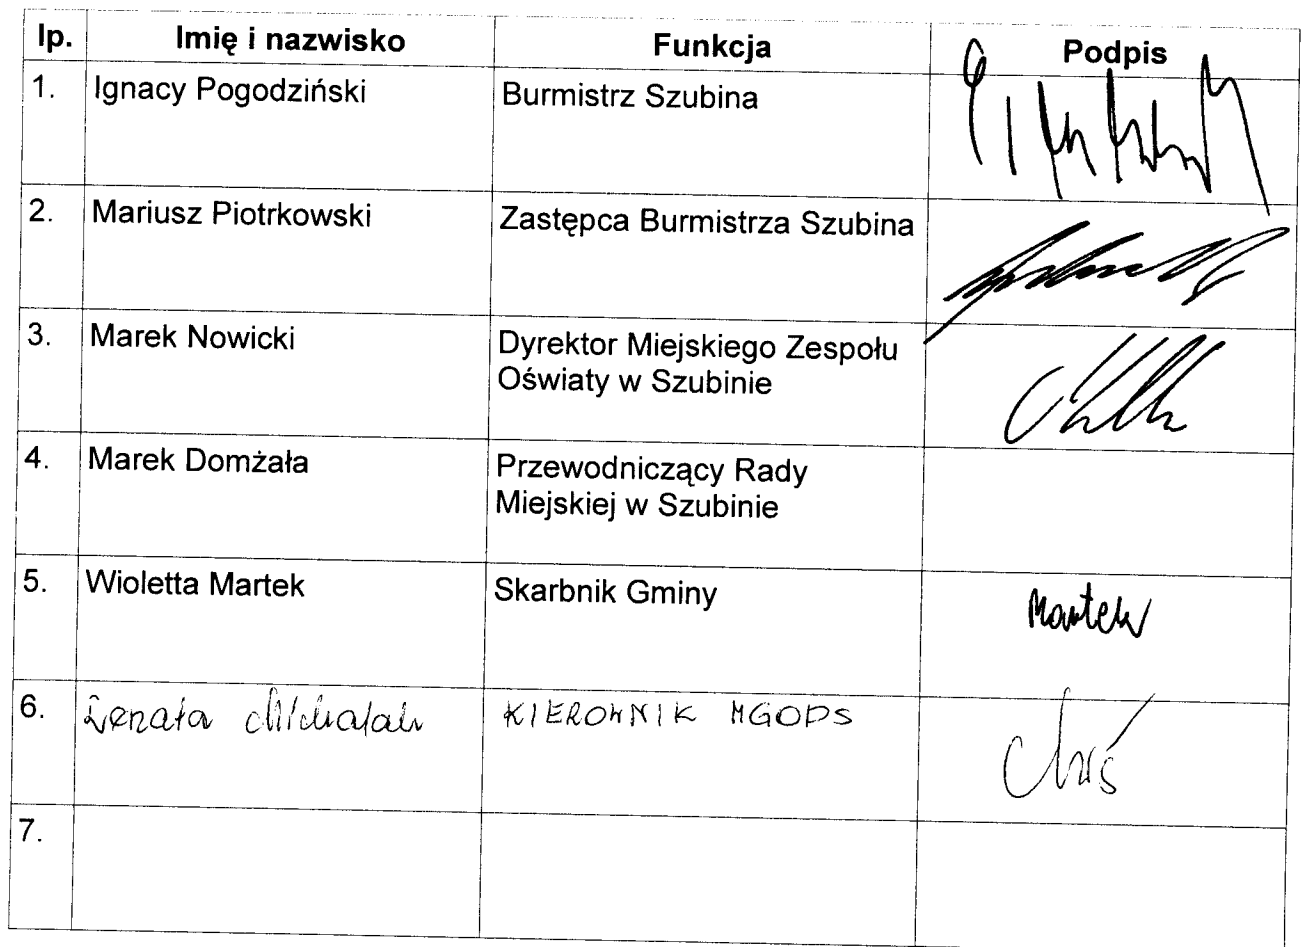 lp. Imię i nazwisko Funkcja Podpis
1. Ignacy Pogodziński Burmistrz Szubina
2. Mariusz Piotrkowski Zastępca Burmistrza Szubina
3. Marek Nowicki Dyrektor Miejskiego Zespołu
Oświaty w Szubinie
4. Marek Domżała Przewodniczący Rady
Miejskiej w Szubinie
5. Wioletta Martek Skarbnik Gminy Martek
6. Renata KIEROWNIK MGOPS
7.